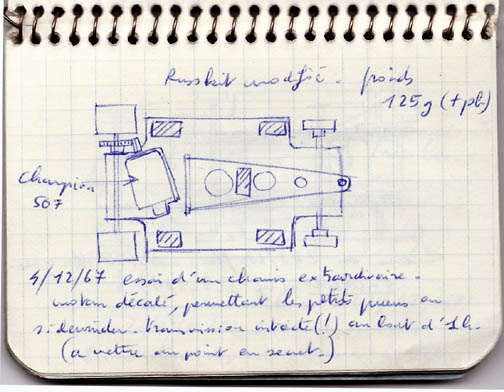 Russkit modifié - poids
125g (+ pb.)
Champion
507
4/12/67 essai d'un chassis extraordinaire -
moteur décalé, permettant les petits pneus en
sidewinder - transmission intacte (!) au bout d'1h.
(a mettre au point en secret.)